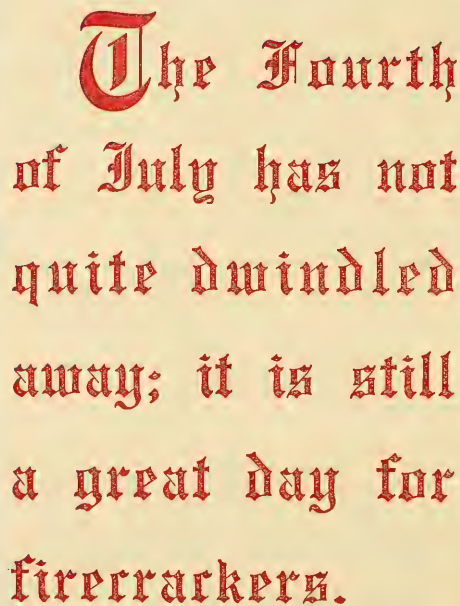 The Fourth
of July has not
quite dwindled
away; it is still
a great day for
firecrackers.